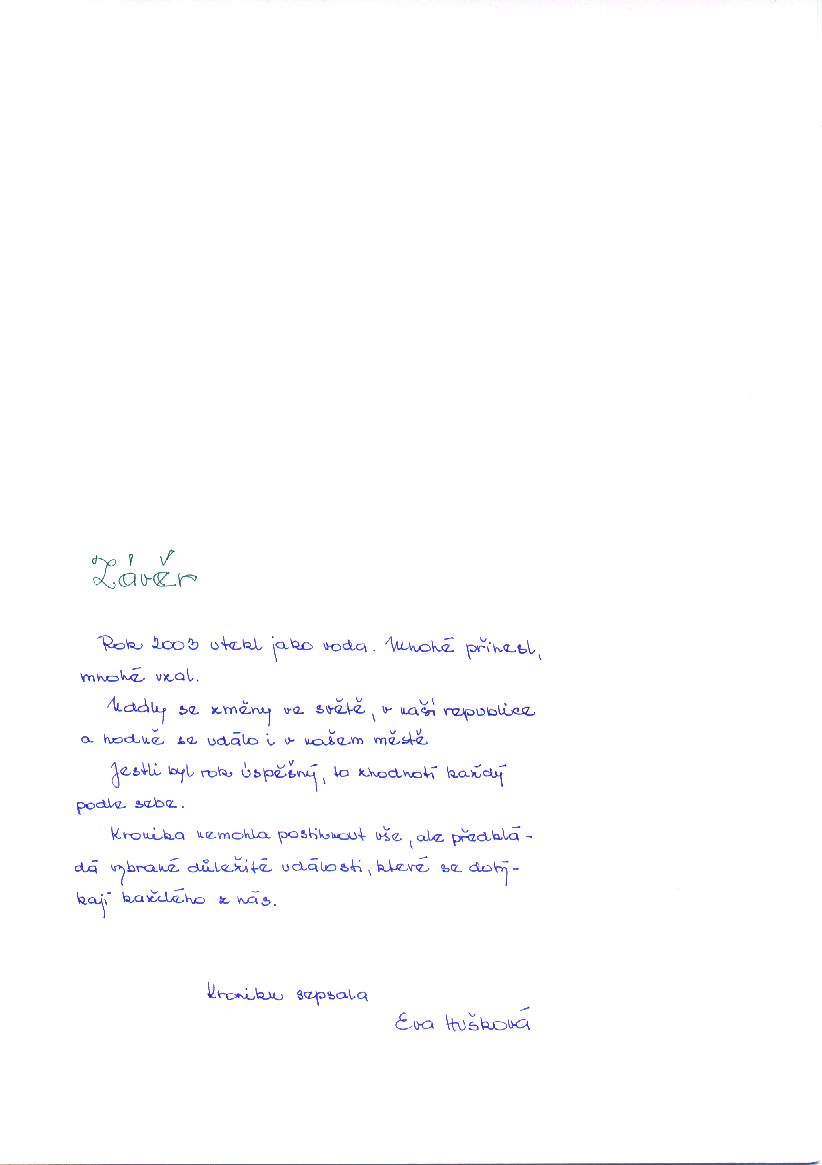 Závěr
Rok 2003 utekl jako voda. Mnohé přinesl,
mnohé vzal.
Nadly se změny ve světě, v naší republice
a hodně se událo i v našem městě.
Jestli byl rok úspěšný, to zhodnotí každý
podle sebe.
Kronika nemohla postihnout vše, ale předklá-
dá vybrané důležité události, které se dotý-
kají každého z nás.
Kroniku sepsala
Eva Hušková